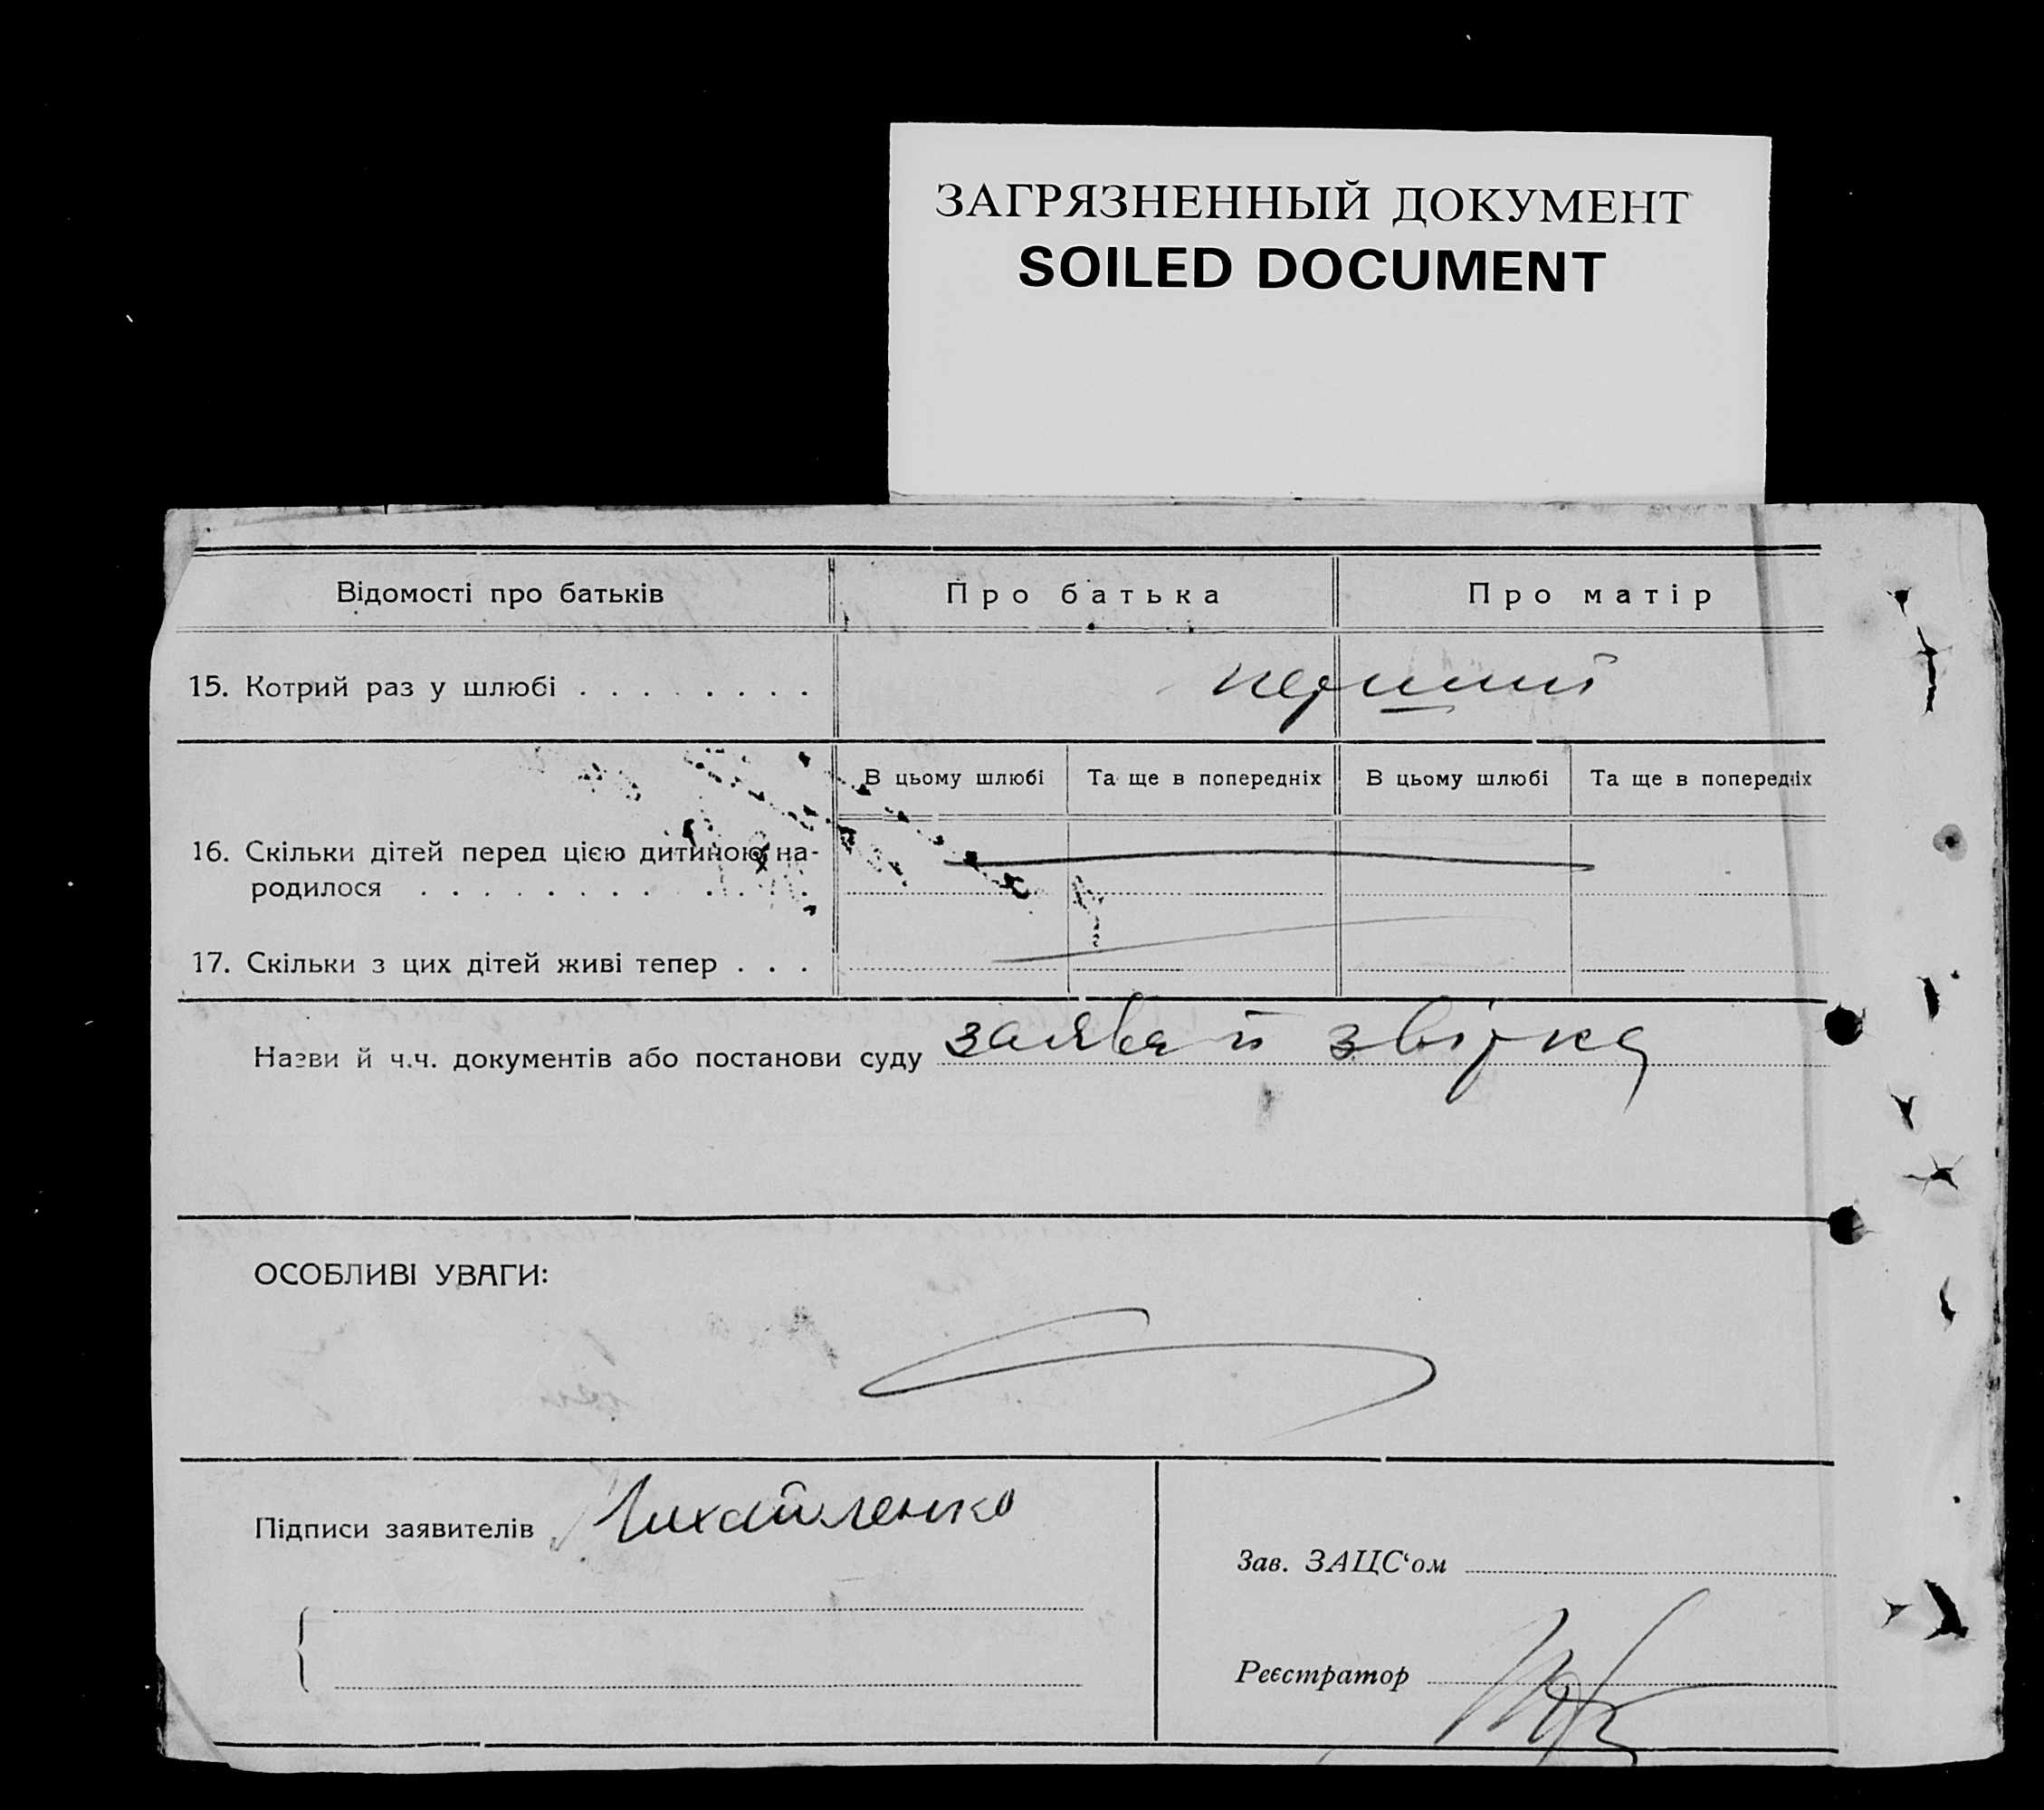 ЗАГРЯЗНЕННЫЙ ДОКУМЕНТ
SOILED DOCUMENT
Відомості про батьків Про батька Про матір
15. Котрий раз у шлюбі . . . . . . . . перший
В цьому шлюбі Та ще в попередніх В цьому шлюбі Та ще в попередніх
16. Скільки дітей перед цією дитиною на-
родилося . . . . . . . . . . . .
17. Скільки з цих дітей живі тепер . . .
Назви й ч.ч. документів або постанови суду заява й звірка
ОСОБЛИВІ УВАГИ:
Підписи заявителів Михайленко
Зав. ЗАЦС‘ом
Реєстратор